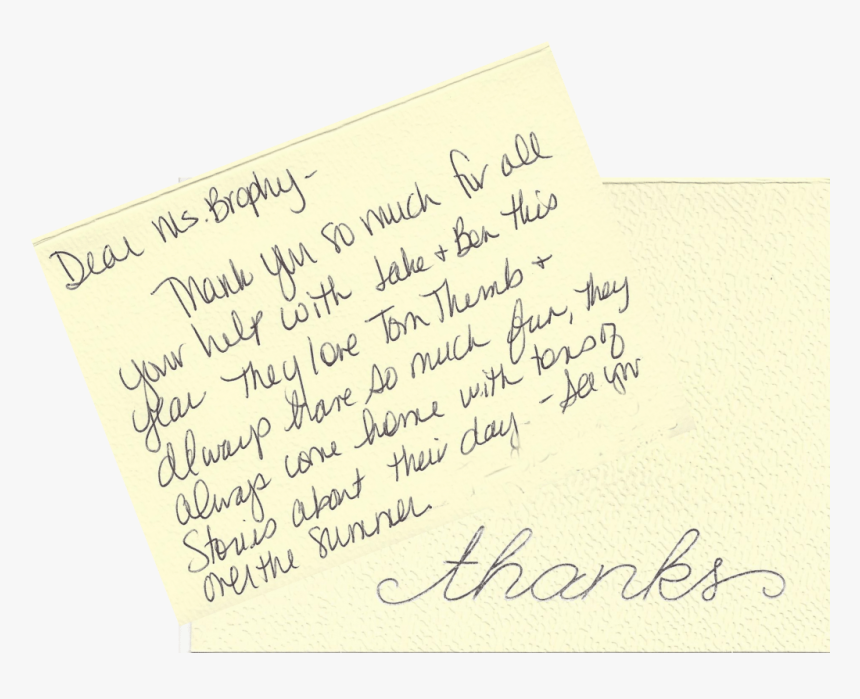 Dear Ms. Brophy-
Thank you so much for all
your help with Jake + Ben this
year They love Tom Thumb +
always have so much fun, they
always come home with tons of
Stories about their day - See you
over the summer.
thanks